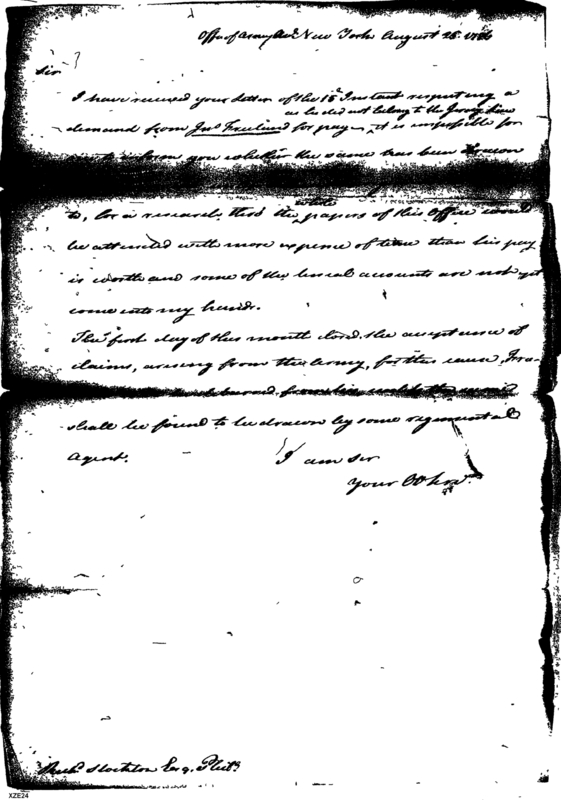 Office of Army Accts New York August 28. 1786
Sir
I have received your Letter of the 15th Instant respecting a
as he did not belong to the Jersey Line
demand from Jno Freeland for pay, it is impossible for
to inform you whether the same has been drawn
to, for a research thro' the whole papers of this Office would
be attended with more expence of time than his pay
is worth and some of the accounts are not yet
come into my hands.
The first day of this month closed the acceptance of
claims, arising from the Army, for this cause, Free-
barred from his
shall be found to be drawn by some regimental
agent.
I am Sir
your Ob Serv.
Richd Stockton Esq.
XZE24